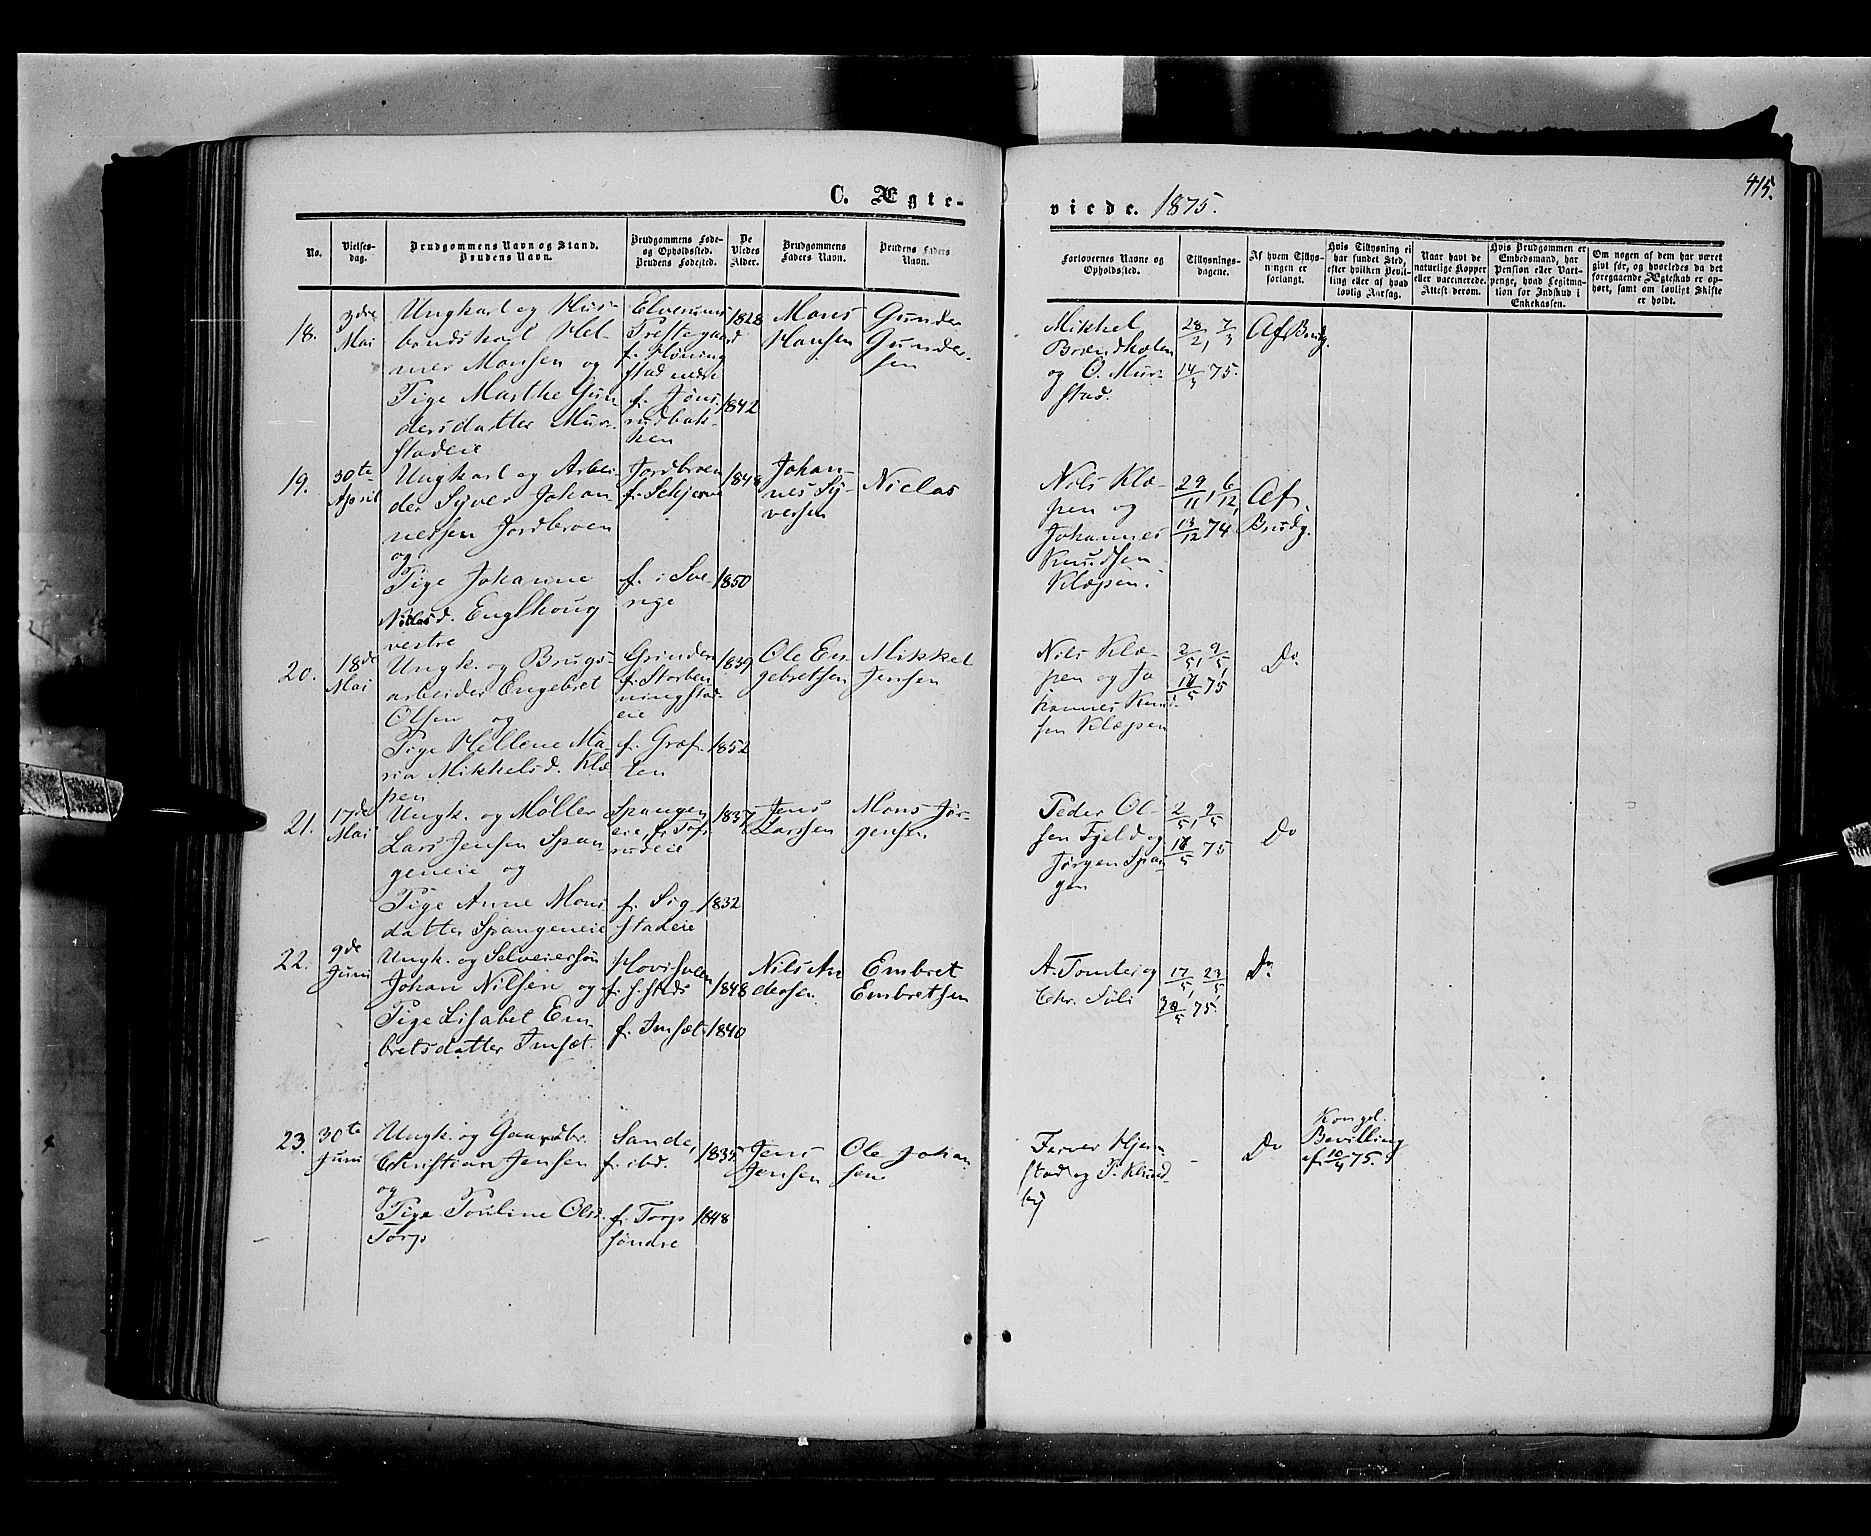 C. Ægte-
viede. 1875.
415.
No.
Vielses-
dag.
Brudgommens Navn og Stand.
Brudens Navn.
Brudgommens Føde-
og Opholdssted.
Brudens Fødested.
De
Viedes
Alder.
Brudgommens
Faders Navn.
Brudens Faders
Navn.
Forlovernes Navne og
Opholdssted.
Tillysnings-
dagene.
Af hvem Tillys-
ningen er
forlangt.
Hvis Tillysning ei
har fundet Sted,
efter hvilken Bevil-
ling eller af hvad
lovlig Aarsag.
Naar havt de
naturlige Kopper
eller vaccinerede.
Attest derom.
Hvis Brudgommen er
Embedsmand, har
Pension eller Vart-
penge, hvad Legitima-
tion for Indskud i
Enkekassen.
Om nogen af dem har været
givt før, og hvorledes da det
foregaaende Ægteskab er op-
hørt, samt om lovligt Skifte
er holdt.
18.
3die
Mai
Ungkarl og Hus-
bondskarl Hel-
mer Monsen og
Tige Marthe Gun
dersdatter Mur-
stadeie
Elverums
Prestegaard
f. Höning
stad nedre
f. Jöns-
rudbak-
ken
1828
1842
Mons
Hansen
Gunder
Gunder-
sen
Mikkel
Brændholen
og O. Mur-
stad.
28/2, 7/3
14/3 75.
Af Brudg.
19.
30te
April
Ungkarl og Arbei-
der Syver Johan
nessen Jordbroen
og
Pige Johanne
Niclasd. Englhoug
vestre
Jordbroen
f. Schjerve
f. i Sve
rige
1848
1850
Johan-
nes Sy-
versen
Niclas
Nils Klæ-
pen og
Johannes
Knudsen
Klæpen.
29/11, 6/12,
13/12 74
Af
Brudg.
20.
18de
Mai
Ungk. og Brugs-
arbeider Engebret
Olsen og
Pige Hellene Ma-
ria Mikkelsd. Klæ
pen
Grinder
f. Storben
ningstad
eie
f. Graf-
ten
1839
1852
Ole En-
gebretsen
Mikkel
Jensen
Nils Klæ-
pen og Jo
hannes Knud
sen Klæpen
2/5, 9/5,
75
Do.
21.
17de
Mai
Ungk. og Møller
Lars Jensen Span-
geneie og
Pige Anne Mons
datter Spangeneie
Spangen
eie, f. Tøps
rudeie
f. Sig
stadeie
1837
1832
Jens
Larssen
Mons Jør-
gensen
Peder Ol-
sen Fjeld og
Jørgen Span
gen
2/5, 9/5
75
Do
22.
9de
Juni
Ungk. og Selveiersøn
Johan Nilsen og
Pige Lisabet Em-
bretsdatter Imsæt.
Hovisveen
f. s. steds
f. Imsæt.
1848
1840
Nils An
dersen
Embret
Embretsen
A. Tomter og
Chr. Tøli
17/5, 23/5,
30/5 75.
Do.
23.
30te
Juni
Ungk. og Gaardbr.
Christian Jensen
og
Pige Pouline Olsd.
Torp
Sande,
f. ibd.
f. Torp
søndre
1835
1848
Jens
Jensen
Ole Johan
sen
Farver Hjem-
stad og P. Klund-
by
Do
Kongel.
Bevilling
af 10/4 75.